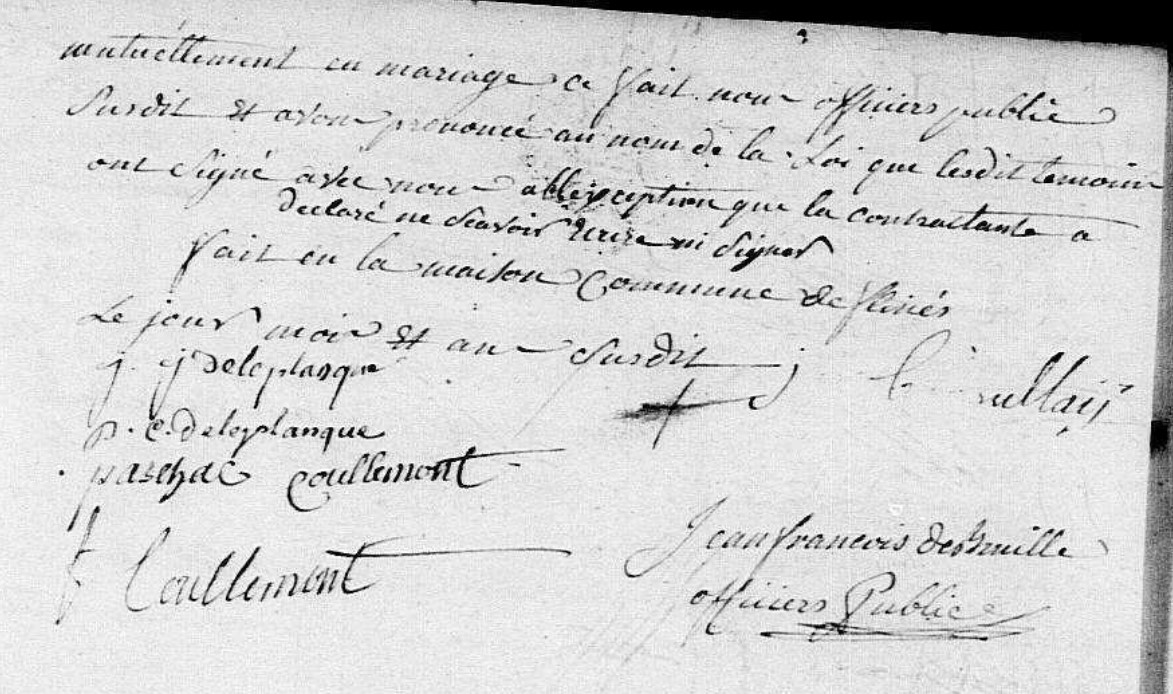 mutuellement en mariage ce fait nous officiers public
Susdit et avons prononcé au nom de la Loi que lesdit temoins
ont Signé avec nous a lexception que la contractante a
declaré ne Scavoir Ecrire ni Signer
fait en la maison Commune de flines
Le jour mois et an Susdit
j. j Deleplanque
p. C. Deleplanque
paschal Coullemont
f Coullemont
Jean francois
officiers Public